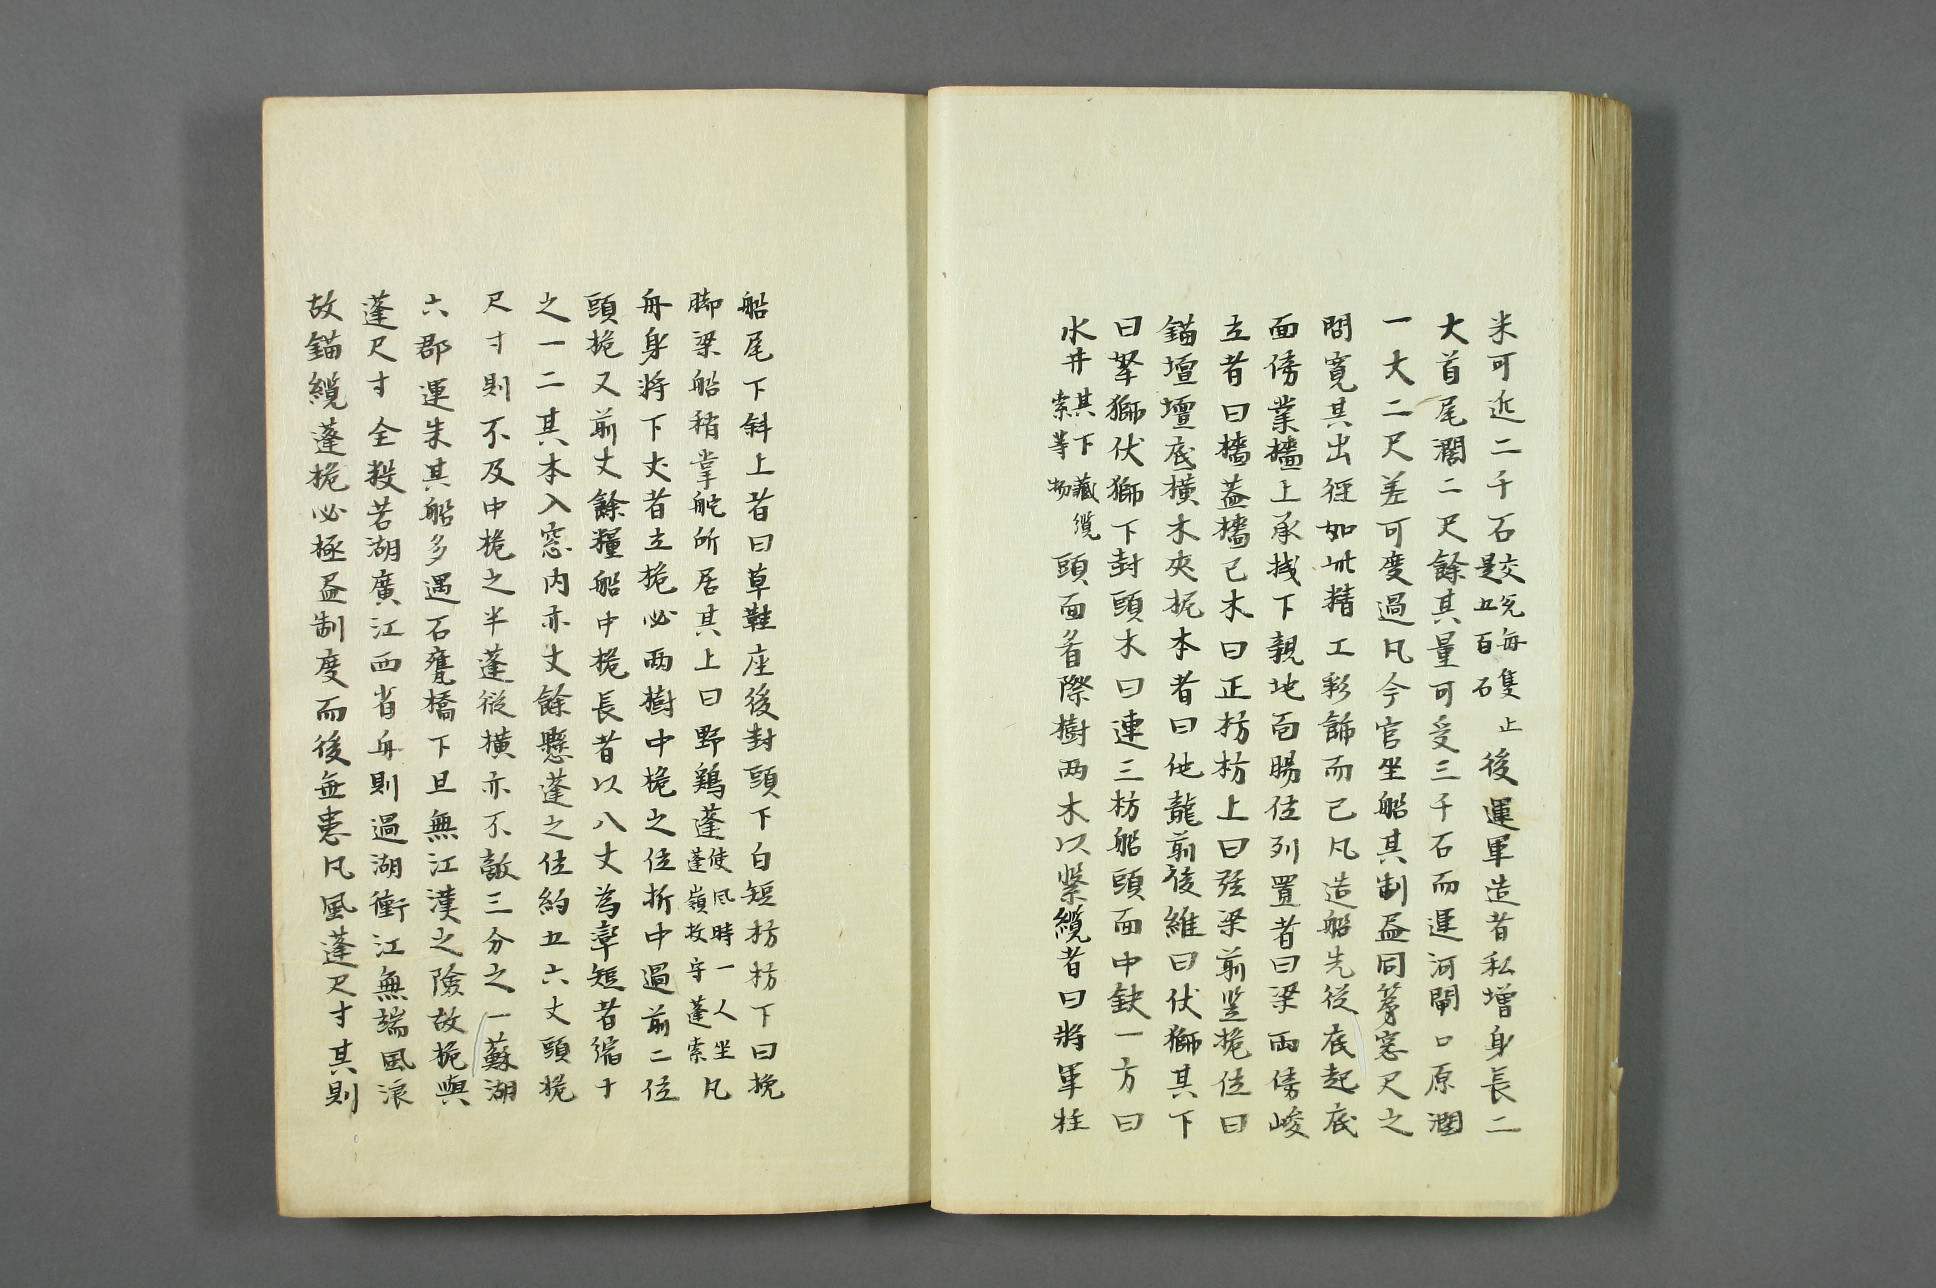 米可近二千石交兌每隻止是五百石後運軍造者私增身長二
大首尾濶二尺餘其量可受三千石而運河閘口原濶
一大二尺差可度過凡今官坐船其制盡同第窓尺之
間寬其出徑加此精工彩飾而已凡造船先從底起底
面傍業檣上承栈下親地面腸位列置者曰梁兩傍峻
立者曰檣蓋檣巳木曰正枋枋上曰弦梁前竖桅位曰
錨壇壇底橫木夾桅本者曰地龍前後維曰伏獅其下
曰拏獅伏獅下封頭木曰連三枋船頭面中缺一方曰
水井其下藏纜索等物頭面眉際樹两木以繫纜者曰將軍柱
船尾下斜上者曰草鞋座後封頭下白短枋枋下曰挽
脚梁船稍掌舵所居其上曰野鶏蓬使風時一人坐蓬嶺收守蓬索凡
舟身將下丈者立桅必两樹中桅之位折中過前二位
頭桅又前丈餘糧船中桅長者以八丈為率短者縮十
之一二其本入窓内亦丈餘懸蓬之位約五六丈頭桅
尺寸則不及中桅之半蓬從橫亦不敵三分之一蘇湖
六郡運朱其船多遇石甕橋下且無江漢之險故桅與
蓬尺寸全殺若湖廣江西省舟則過湖衝江無端風浪
故錨纜蓬桅必極盡制度而後無患凡風蓬尺寸其則